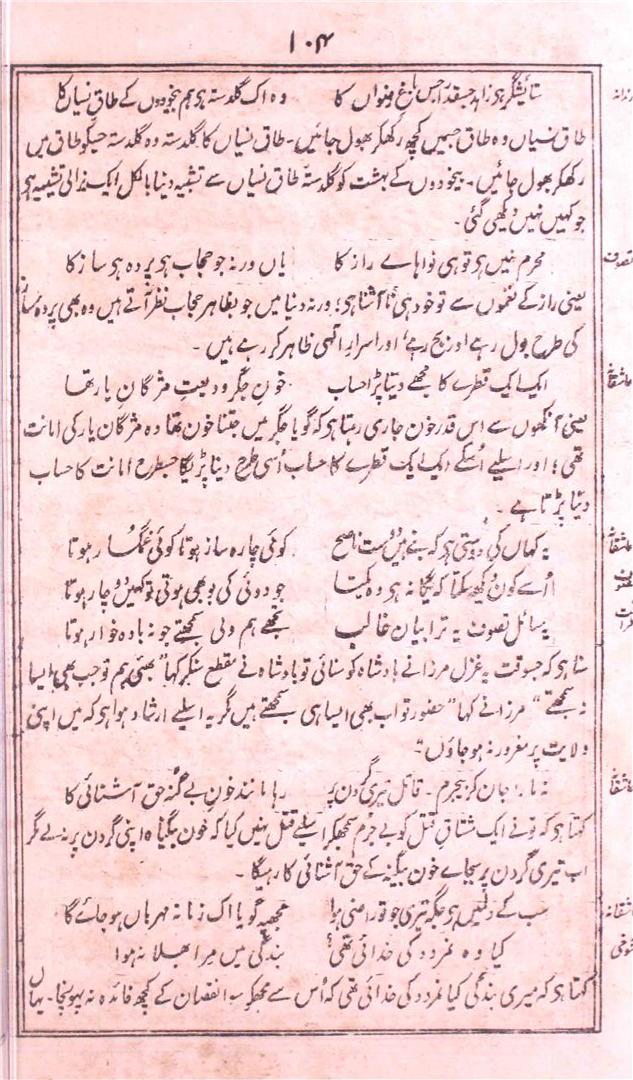 ۱۰۴
ستائشگر ہو زاہد جسقدر جس باغِ رضواں کا وہ اک گلدستہ ہو ہم بیخودوں کے طاقِ نسیاں کا
طاقِ نسیاں وہ طاق جسمیں کچھ رکھکر بھول جائیں۔ طاقِ نسیاں کا گلدستہ وہ گلدستہ جسکو طاق میں
رکھکر بھول جائیں۔ بیخودوں کے بہشت کو گلدستۂ طاقِ نسیاں سے تشبیہ دینا بالکل ایک نرالی تشبیہ ہی
جو کہیں نہیں دیکھی گئی۔
تصوف
محرم نہیں ہو تو ہی نواہاے راز کا یاں ورنہ جو حجاب ہو پردہ ہو ساز کا
یعنی راز کے نغموں سے تو خود ہی نا آشنا ہی؛ ورنہ دنیا میں جو بظاہر حجاب نظر آتے ہیں وہ بھی پردہ ساز
کی طرح بول رہے اور بج رہے' اور اسرارِ الٰہی ظاہر کر رہے ہیں۔
عاشقانہ
ایک ایک قطرے کا مجھے دینا پڑا حساب خونِ جگر ودیعتِ مژگانِ یار تھا
یعنی آنکھوں سے اس قدر خون جاری رہتا ہی کہ گویا جگر میں جتنا خون تھا وہ مژگانِ یار کی امانت
تھی؛ اور اسلیے اُسکے ایک ایک قطرے کا حساب اُسی طرح دینا پڑیگا جسطرح امانت کا حساب
دینا پڑتا ہے۔
عاشقانہ
یہ کہاں کی دوستی ہی کہ بنے ہیں دوست ناصح کوئی چارہ ساز ہوتا کوئی غمگسار ہوتا
اُسے کون دیکھ سکتا کہ یگانہ ہی وہ یکتا جو دوئی کی بو بھی ہوتی تو کہیں دوچار ہوتا
یہ مسائلِ تصوف یہ ترا بیان غالب تجھے ہم ولی سمجھتے جو نہ بادہ خوار ہوتا
سنا ہی کہ جسوقت یہ غزل مرزا نے بادشاہ کو سنائی تو بادشاہ نے مقطع سنکر کہا "بھئی ہم تو جب بھی ایسا
نہ سمجھتے" مرزا نے کہا "حضور تو اب بھی ایسا ہی سمجھتے ہیں مگر یہ اسلیے ارشاد ہوا ہی کہ میں اپنی
ولایت پر مغرور نہ ہو جاؤں"۔
عاشقانہ
نہ مارا جان کر بیجرم۔ قاتل تیری گردن پر رہا مانندِ خونِ بے گنہ حق آشنائی کا
کہتا ہی کہ تو نے ایک مشتاقِ قتل کو بے جرم سمجھکر اسلیے قتل نہیں کیا کہ خونِ بیگناہ اپنی گردن پر نہ لے مگر
اب تیری گردن پر بجاے خونِ بیگنہ کے حقِ آشنائی کا رہیگا۔
عاشقانہ
سب کے دلمیں ہی جگہ تیری جو تو راضی ہوا مجھپہ گویا اک زمانہ مہرباں ہو جائے گا
شوخی
کیا وہ نمرود کی خدائی تھی؟ بندگی میں مرا بھلا نہ ہوا
کہتا ہی کہ میری بندگی کیا نمرود کی خدائی تھی کہ اُس سے مجھکو سوا نقصان کے کچھ فائدہ نہ پہونچا۔ یہاں